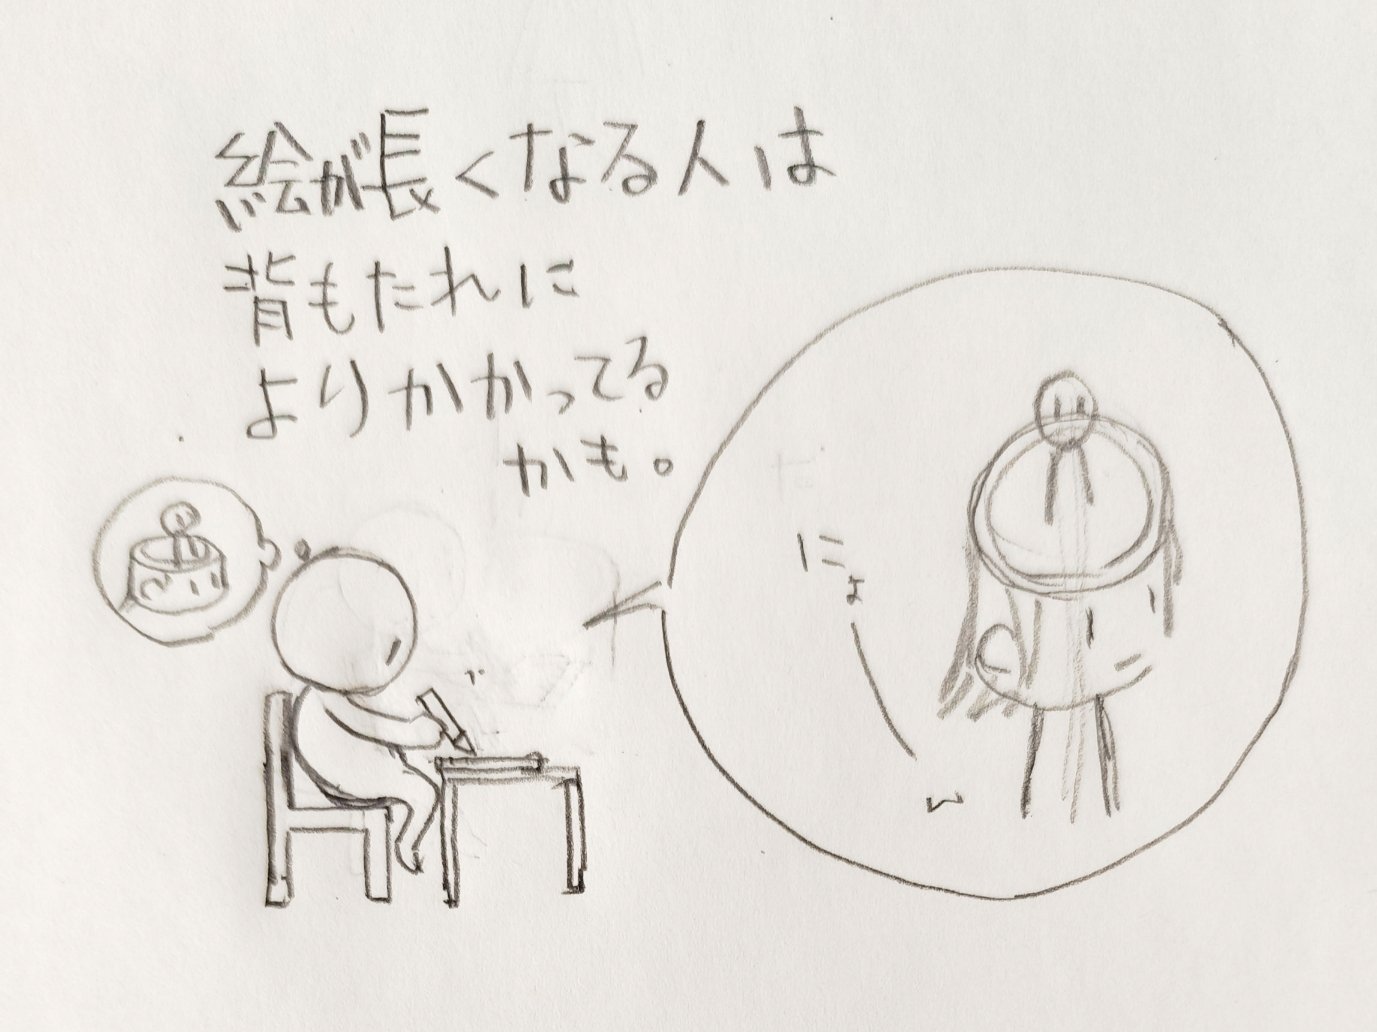 絵が長くなる人は
背もたれに
よりかかってる
かも。
にょ
w